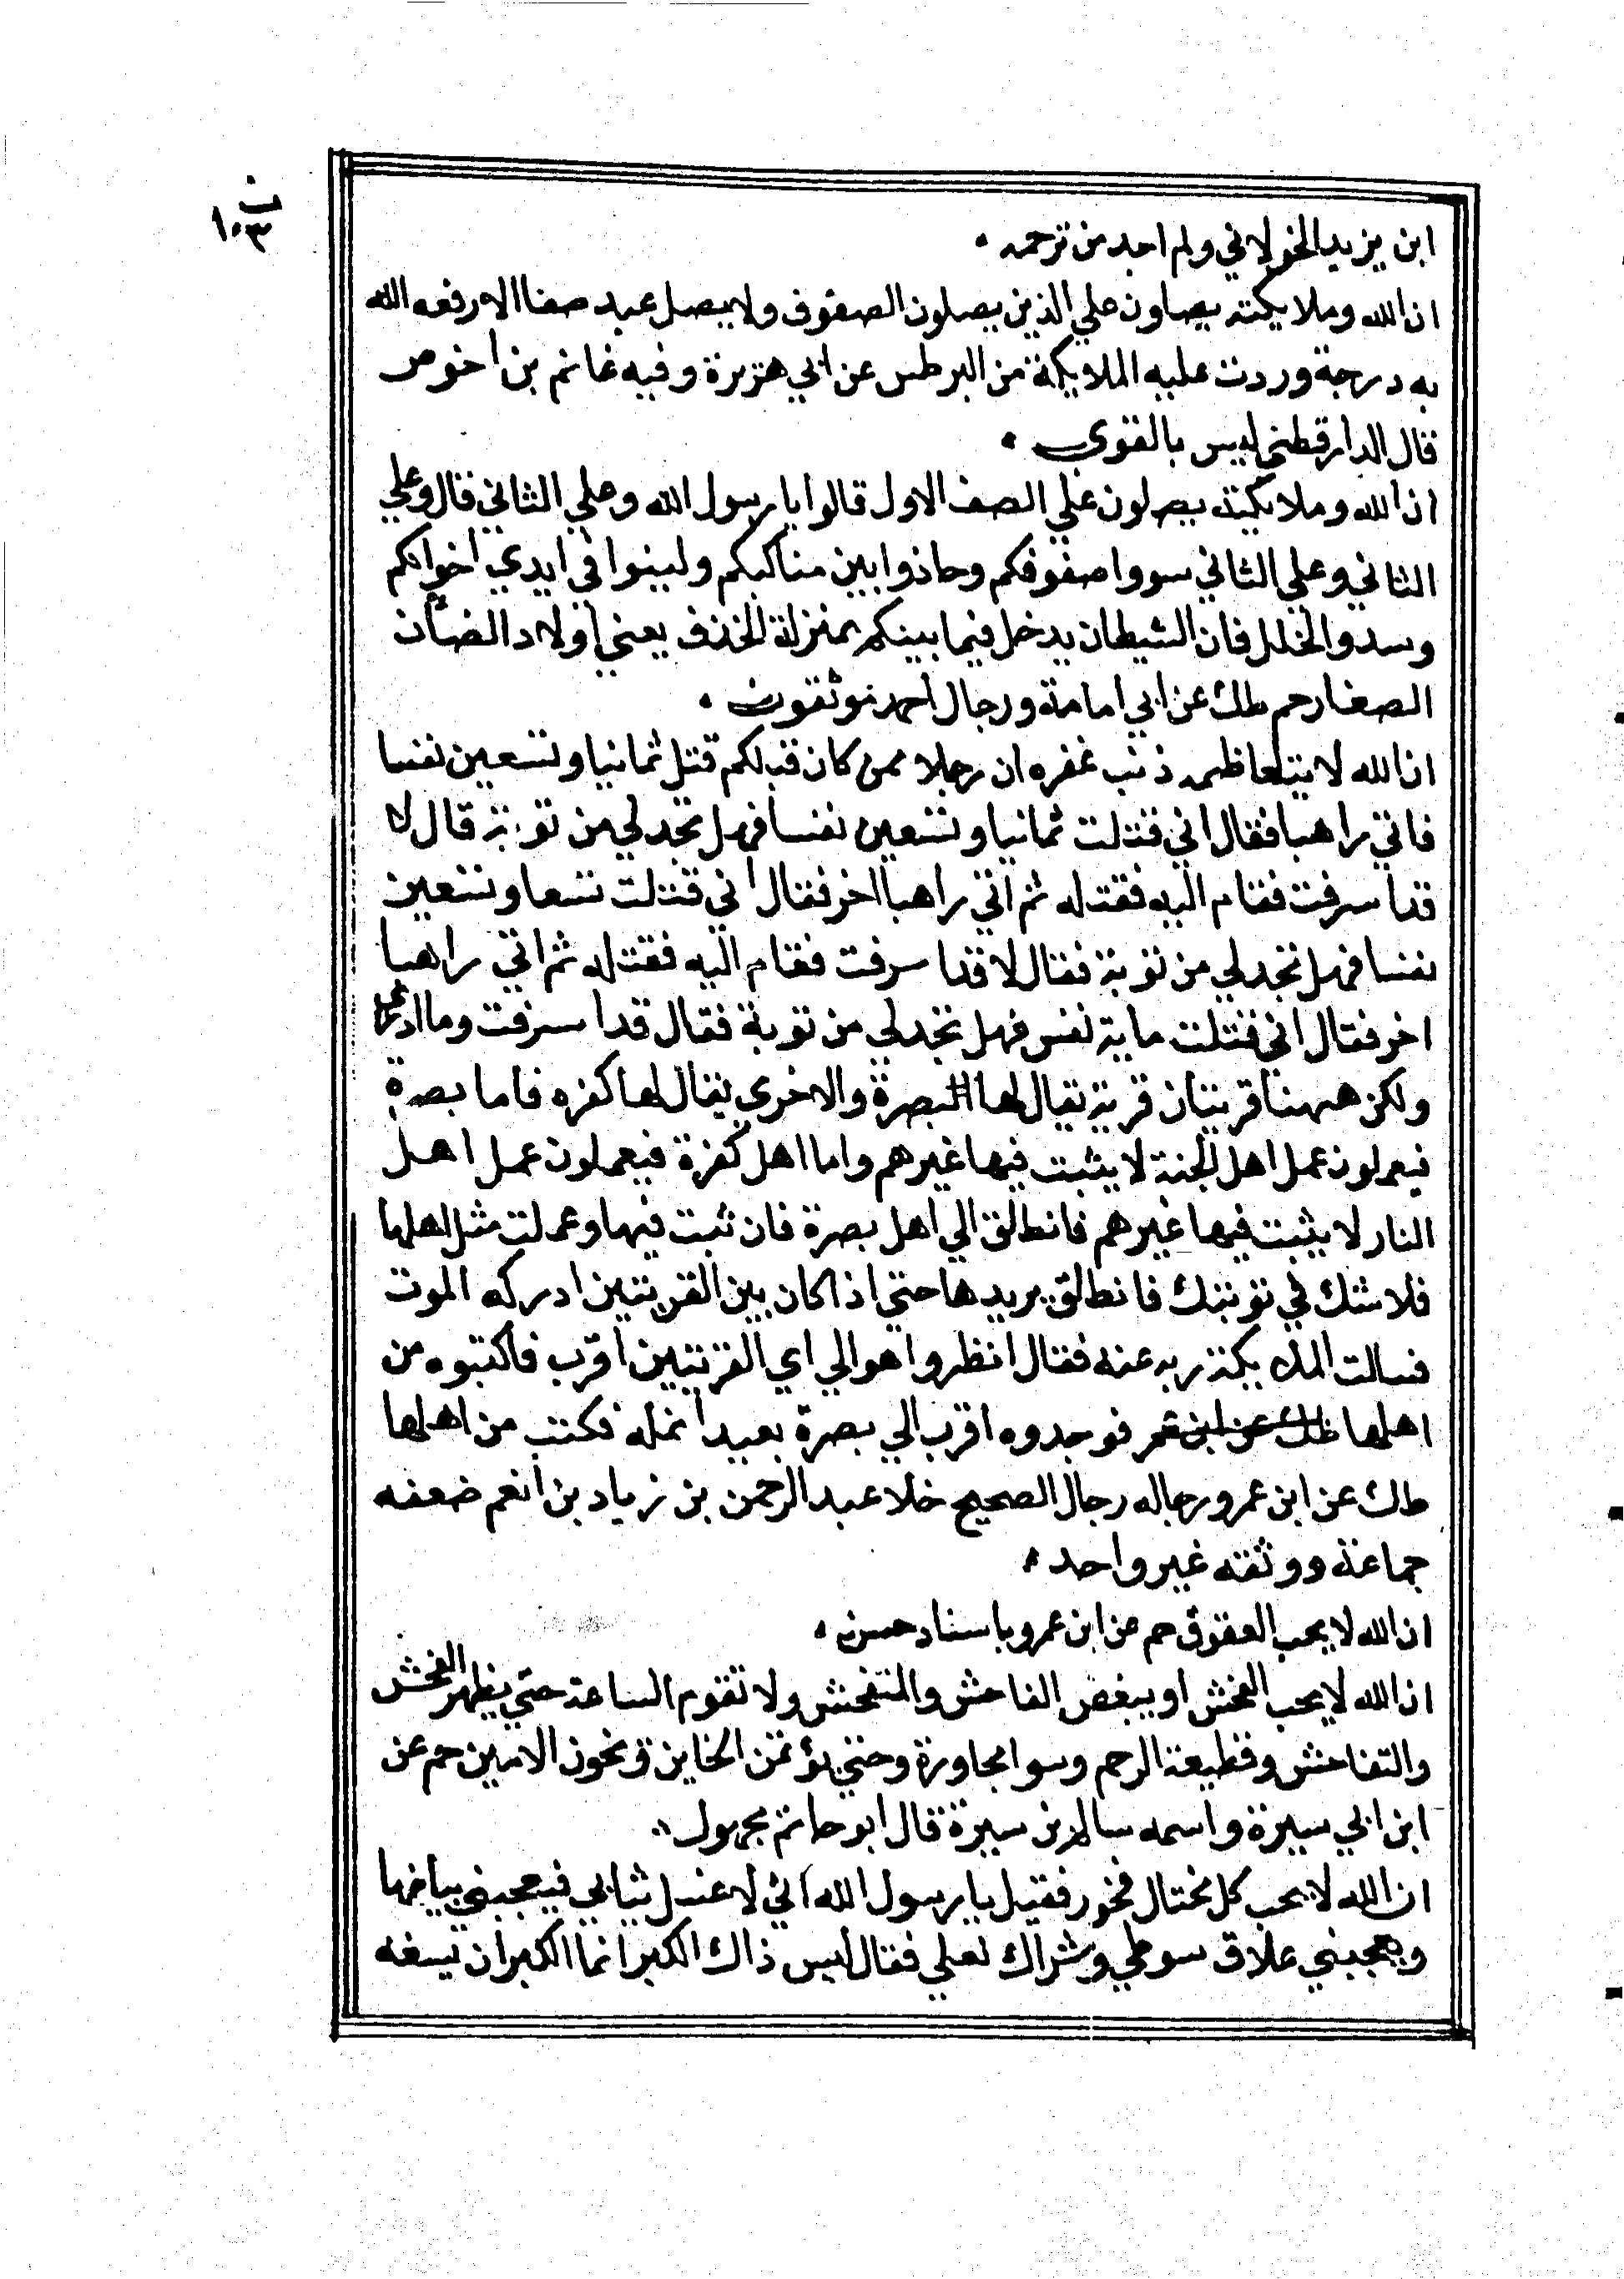 ن
١٠٣
ابن يزيد الخولاني ولم اجد من ترجمه
ان الله وملايكته يصلون علي الذين يصلون الصفوف ولا يصل عبد صفا الا رفعه الله
به درجة وردت عليه الملايكة من البر طس عن ابي هريرة وفيه غانم بن احوص
قال الدارقطني ليس بالقوي
ان الله وملايكته يصلون علي الصف الاول قالوا يا رسول الله وعلي الثاني قال وعلي
الثاني وعلي الثاني سووا صفوفكم وحاذوا بين مناكبكم ولينوا في ايدي اخوانكم
وسدوا الخلل فان الشيطان يدخل فيما بينكم بمنزلة الخذف يعني اولاد الضأن
الصغار حم طك عن ابي امامة ورجال احمد موثقون
ان الله لا يتعاظمه ذنب غفره ان رجلا ممن كان قبلكم قتل ثمانيا وتسعين نفسا
فاتي راهبا فقال اني قتلت ثمانيا وتسعين نفسا فهل تجد لي من توبة قال لا
قد اسرفت فقام اليه فقتله ثم اتي راهبا اخر فقال اني قتلت تسعا وتسعين
نفسا فهل تجد لي من توبة فقال لا قد اسرفت فقام اليه فقتله ثم اتي راهبا
اخر فقال اني قتلت ماية نفس فهل تجد لي من توبة فقال قد اسرفت وما ادري
ولكن ههنا قريتان قرية يقال لها البصرة والاخري يقال لها كفره فاما بصرة
فيعملون عمل اهل الجنة لا يثبت فيها غيرهم واما اهل كفرة فيعملون عمل اهل
النار لا يثبت فيها غيرهم فانطلق الي اهل بصرة فان ثبت فيها وعملت مثل اهلها
فلا شك في توبتك فانطلق يريدها حتي اذا كان بين القريتين ادركه الموت
فسالت الملايكة ربه عنه فقال انظروا هو الي اي القريتين اقرب فاكتبوه من
اهلها طك عن ابن عمر فوجدوه اقرب الي بصرة بعيد انملة فكتب من اهلها
طك عن ابن عمرو رجاله رجال الصحيح خلا عبد الرحمن بن زياد بن انعم ضعفه
جماعة ووثقه غير واحد
ان الله لا يحب العقوق حم عن ابن عمرو باسناد حسن
ان الله لا يحب الفحش او يبغض الفاحش والمتفحش ولا تقوم الساعة حتي يظهر الفحش
والتفاحش وقطيعة الرحم وسوا مجاورة وحتي يؤتمن الخاين ويخون الامين حم عن
ابن ابي سبرة واسمه سالم بن سبرة قال ابو حاتم مجهول
ان الله لا يحب كل مختال فخور فقيل يا رسول الله اني لاغسل ثيابي فيعجبني بياضها
ويعجبني علاق سوطي وشراك نعلي فقال ليس ذاك الكبر انما الكبر ان تسفه